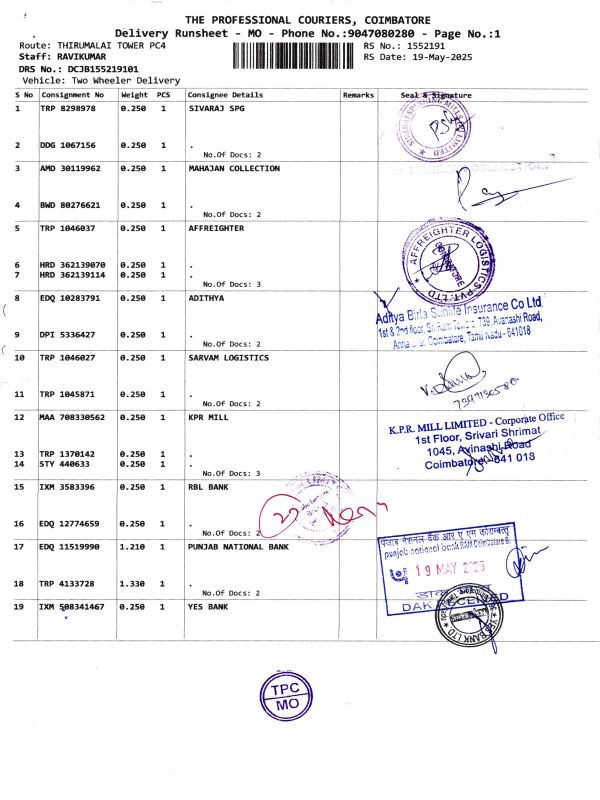 THE PROFESSIONAL COURIERS, COIMBATORE
Delivery Runsheet - MO - Phone No.:9047080280 - Page No.:1
Route: THIRUMALAI TOWER PC4
RS No.: 1552191
Staff: RAVIKUMAR
RS Date: 19-May-2025
DRS No.: DCJB155219101
Vehicle: Two Wheeler Delivery
S No Consignment No Weight PCS Consignee Details Remarks Seal & Signature
1 TRP 8298978 0.250 1 SIVARAJ SPG
2 DDG 1067156 0.250 1 .
No.Of Docs: 2
3 AMD 30119962 0.250 1 MAHAJAN COLLECTION
4 BWD 80276621 0.250 1 .
No.Of Docs: 2
5 TRP 1046037 0.250 1 AFFREIGHTER
AFFREIGHTER LOGISTICS PVT. LTD
6 HRD 362139070 0.250 1 .
7 HRD 362139114 0.250 1 .
No.Of Docs: 3
8 EDQ 10283791 0.250 1 ADITHYA
Aditya Birla Sunlife Insurance Co Ltd.
1st & 2nd floor, Sri Ram Towers, 739, Avanashi Road,
Anna Coimbatore, Tamil Nadu - 641018
9 DPI 5336427 0.250 1 .
No.Of Docs: 2
10 TRP 1046027 0.250 1 SARVAM LOGISTICS
11 TRP 1045871 0.250 1 .
No.Of Docs: 2
12 MAA 708330562 0.250 1 KPR MILL
K.P.R. MILL LIMITED - Corporate Office
1st Floor, Srivari Shrimat
1045, Avinashi Road
Coimbatore - 641 018
13 TRP 1370142 0.250 1 .
14 STY 440633 0.250 1 .
No.Of Docs: 3
15 IXM 3583396 0.250 1 RBL BANK
16 EDQ 12774659 0.250 1 .
No.Of Docs: 2
17 EDQ 11519990 1.210 1 PUNJAB NATIONAL BANK
punjab national bank
19 MAY 2025
18 TRP 4133728 1.330 1 .
No.Of Docs: 2
DAK RECEIVED
19 IXM 508341467 0.250 1 YES BANK
YES BANK LTD.
TPC
MO